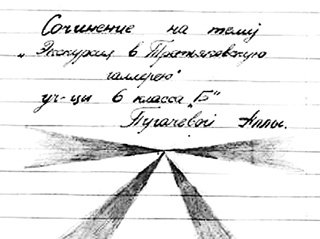 Сочинение на тему
„Экскурсия в Третьяковскую
галлерею"
уч-цы 6 класса „Б"
Пугачевой Аллы.